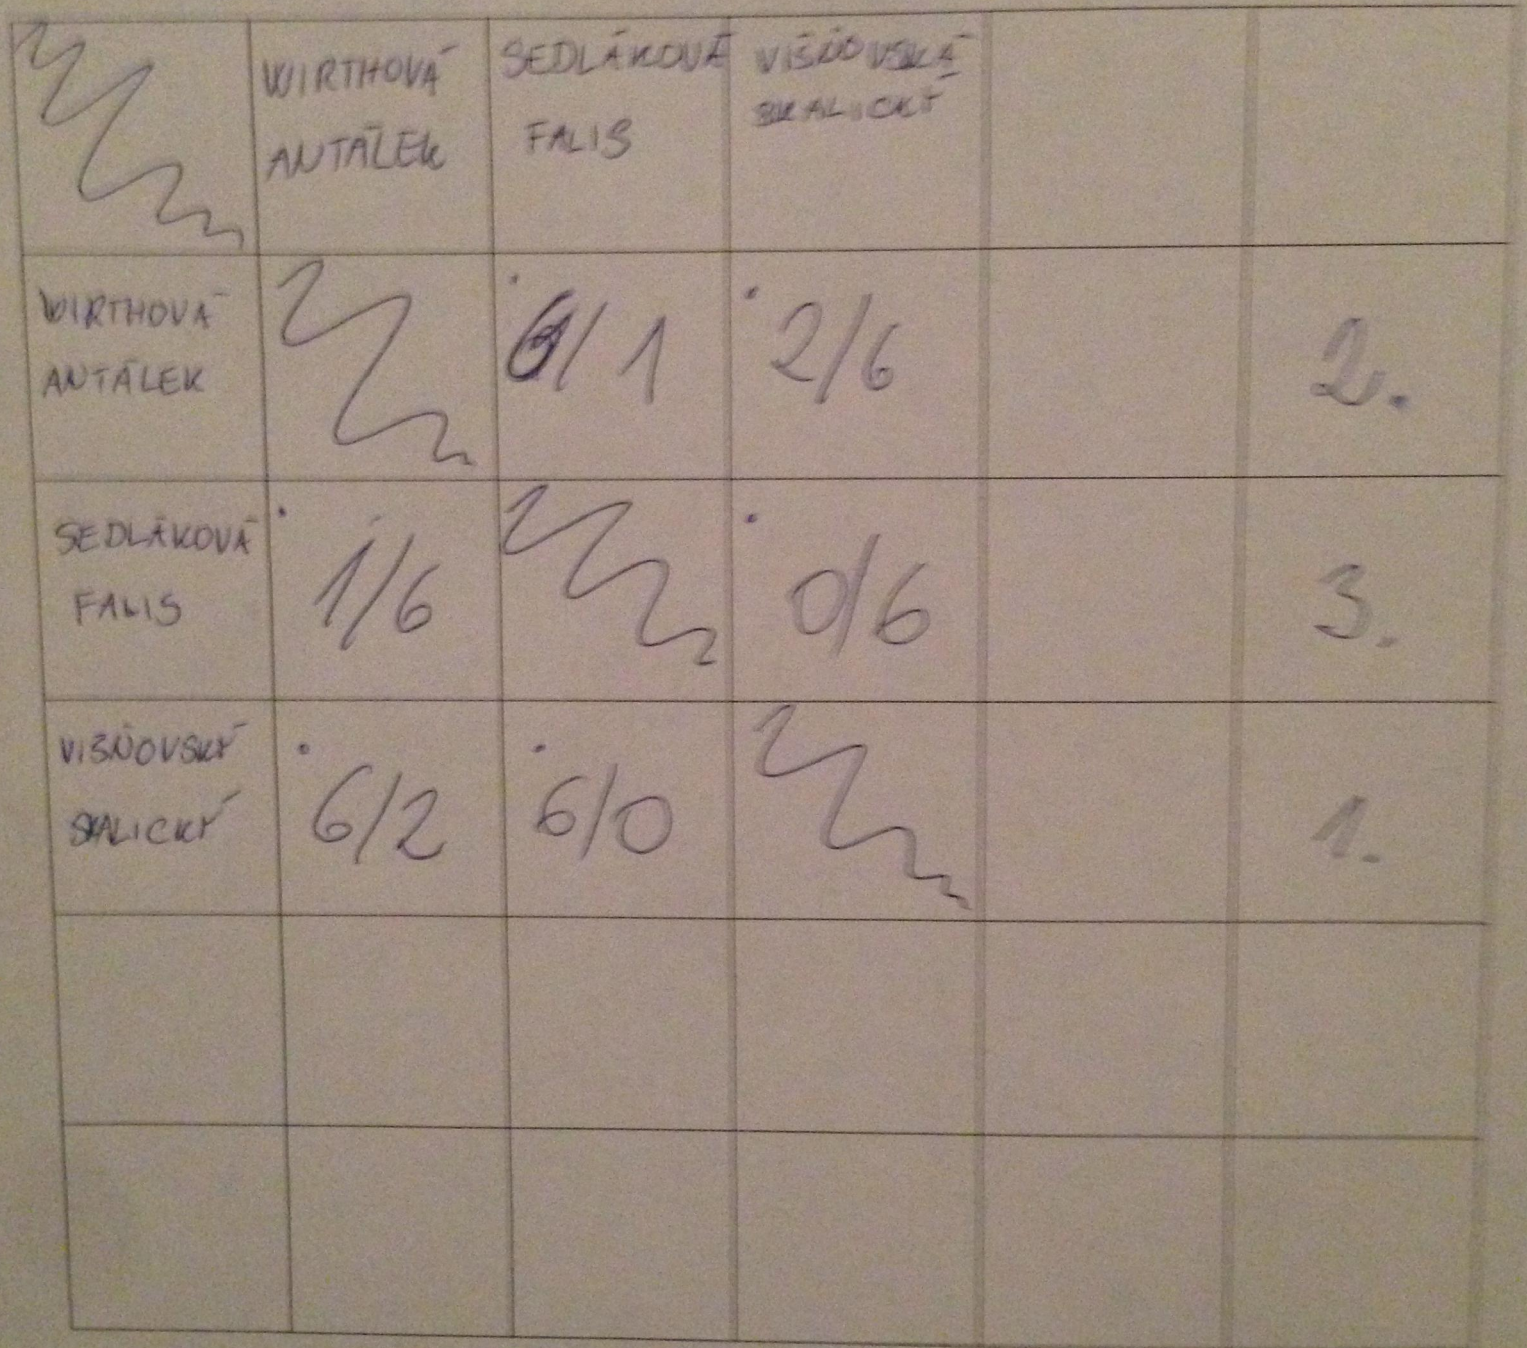 WIRTHOVÁ
ANTÁLEK
SEDLÁKOVÁ
FALIS
VIŠŇOVSKÁ
SKALICKÝ
WIRTHOVÁ
ANTÁLEK
6/1
2/6
2.
SEDLÁKOVÁ
FALIS
1/6
0/6
3.
VIŠŇOVSKÝ
SKALICKÝ
6/2
6/0
1.